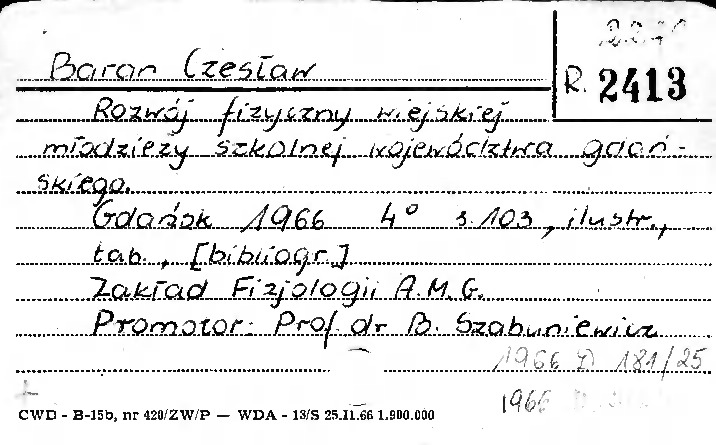 Baran Czesław
R. 2413
Rozwój fizyczny wiejskiej
młodzieży szkolnej województwa gdań-
skiego.
Gdańsk 1966 4° s. 103, ilustr.,
tab., [bibliogr.]
Zakład Fizjologii A.M.G.
Promotor: Prof. dr B. Szabuniewicz
1966 D 181/25
1966
CWD - B-15b, nr 420/ZW/P — WDA - 13/S 25.II.66 1.900.000